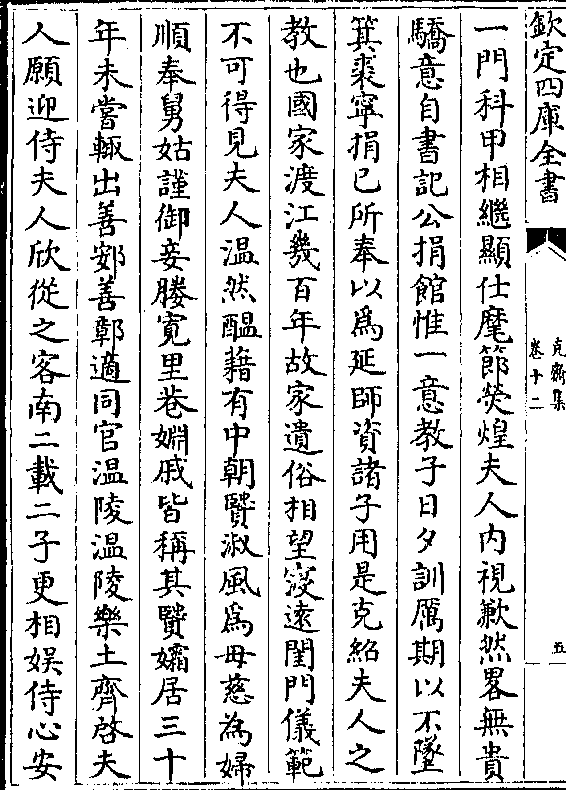 欽定四庫全書
克齋集
卷十二
五
一門科甲相繼顯仕麾節熒煌夫人内視歉然畧無貴
驕意自書記公捐館惟一意教子日夕訓厲期以不墜
箕裘寧捐已所奉以為延師資諸子用是克紹夫人之
教也國家渡江幾百年故家遺俗相望寖遠閨門儀範
不可得見夫人温然醖藉有中朝賢淑風為母慈為婦
順奉舅姑謹御妾媵寛里巷婣戚皆稱其賢孀居三十
年未嘗輙出善鄈善鄣適同官温陵温陵樂土齊啓夫
人願迎侍夫人欣從之客南二載二子更相娱侍心安